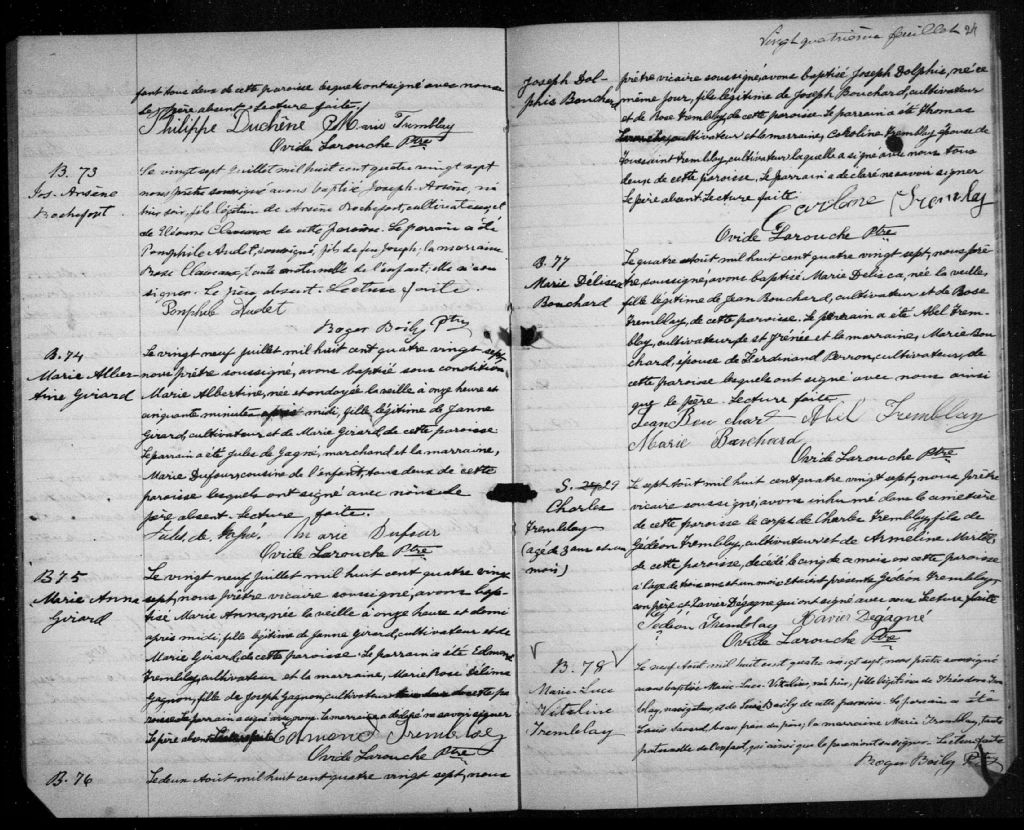 font tous deux de cette paroisse lesquels ont signé avec nous
le père absent. Lecture faite.
Philippe Duchêne Marie Tremblay
Ovide Larouche Ptre
B. 73
Jos. Arsène
Rochefort
Le vingt sept Juillet mil huit cent quatre vingt sept
nous prêtre soussigné avons baptisé Joseph Arsène, né
hier soir, fils légitime de Arsène Rochefort, cultivateur, et
de de cette paroisse. Le parrain a été
Pamphile Audet, soussigné, fils de feu Joseph; la marraine
Rose tante maternelle de l'enfant; elle n'a su
signer. Le père absent. Lecture faite.
Pamphile Audet
Roger Boily Ptre
B. 74
Marie Alber-
tine Girard
Le vingt neuf juillet mil huit cent quatre vingt sept
nous prêtre soussigné, avons baptisé sous condition,
Marie Albertine, née et ondoyée la veille à onze heure et
cinquante minutes midi, fille légitime de Janne
Girard, cultivateur et de Marie Girard de cette paroisse
Le parrain a été Jules de Gagné, marchand et la marraine,
Marie Dufour, cousine de l'enfant, tous deux de cette
paroisse lesquels ont signé avec nous le
père absent. Lecture faite.
Jules de Marie Dufour
Ovide Larouche Ptre
B 75
Marie Anna
Girard
Le vingt neuf Juillet mil huit cent quatre vingt
sept, nous prêtre vicaire soussigné, avons bap-
tisé Marie Anna, née la veille à onze heure et demi
après midi, fille légitime de Janne Girard, cultivateur et de
Marie Girard, de cette paroisse. Le parrain a été Edmond
Tremblay, cultivateur et la marraine, Marie Rose Délima
Gagnon, fille de Joseph Gagnon, cultivateur tous deux de cette pa
roisse le parrain a signé avec nous. La marraine a déclaré ne savoir signer
Le père absent Lecture faite Edmond Tremblay
Ovide Larouche Ptre
B. 76
Le deux Août mil huit cent quatre vingt sept, nous
Vingt quatrième feuillet 24
Joseph Dol-
phis Bouchard
prêtre vicaire soussigné, avons baptisé Joseph Dolphis, né ce
même jour, fils légitime de Joseph Bouchard, cultivateur
et de Rose Tremblay, de cette paroisse. Le parrain a été Thomas
Larouche, cultivateur et la marraine, Caroline Tremblay épouse de
Toussaint Tremblay, cultivateur laquelle a signé avec nous tous
deux de cette paroisse. Le parrain a déclaré ne savoir signer
Le père absent. Lecture faite
Carline Tremblay
Ovide Larouche Ptre
B. 77
Marie Délisca
Bouchard
Le quatre Août mil huit cent quatre vingt sept, nous prê-
tre, soussigné, avons baptisé Marie Delisca, née la veille,
fille légitime de Jean Bouchard, cultivateur et de Rose
Tremblay, de cette paroisse. Le parrain a été Abel Trem-
blay, cultivateur, de St Irénée et la marraine, Marie Bou-
chard, épouse de Ferdinand Perron, cultivateur, de
cette paroisse lesquels ont signé avec nous ainsi
que le père. Lecture faite.
Jean Bouchard Abel Tremblay
Marie Bouchard
Ovide Larouche Ptre
S. 29
Charles
Tremblay
(agé de 3 ans et un
mois)
Le sept Août mil huit cent quatre vingt sept, nous prêtre
vicaire soussigné, avons inhumé dans le cimetière
de cette paroisse le corps de Charles Tremblay, fils de
Gédéon Tremblay, cultivateur, et de Armeline Martel
de cette paroisse, décédé le cinq de ce mois en cette paroisse
à l'age de trois ans et un mois. Etaient présents Gédéon Tremblay,
son père et Xavier Dégagné qui ont signé avec nous Lecture faite
Gédeon Tremblay Xavier Dégagné
Ovide Larouche Ptre
B. 78
Marie-Luce
Vitaline
Tremblay
Le neuf Août mil huit cent quatre vingt sept, nous prêtre soussigné
avons baptisé Marie Luce Vitaline, née hier, fille légitime de Théodore Trem
blay, navigateur, et de Luce Boily de cette paroisse. Le parrain a été
Louis Savard, beau père du père; la marraine Marie Tremblay, tante
paternelle de l'enfant, qui ainsi que le parrain ont su signer. Lecture faite
Roger Boily Ptre